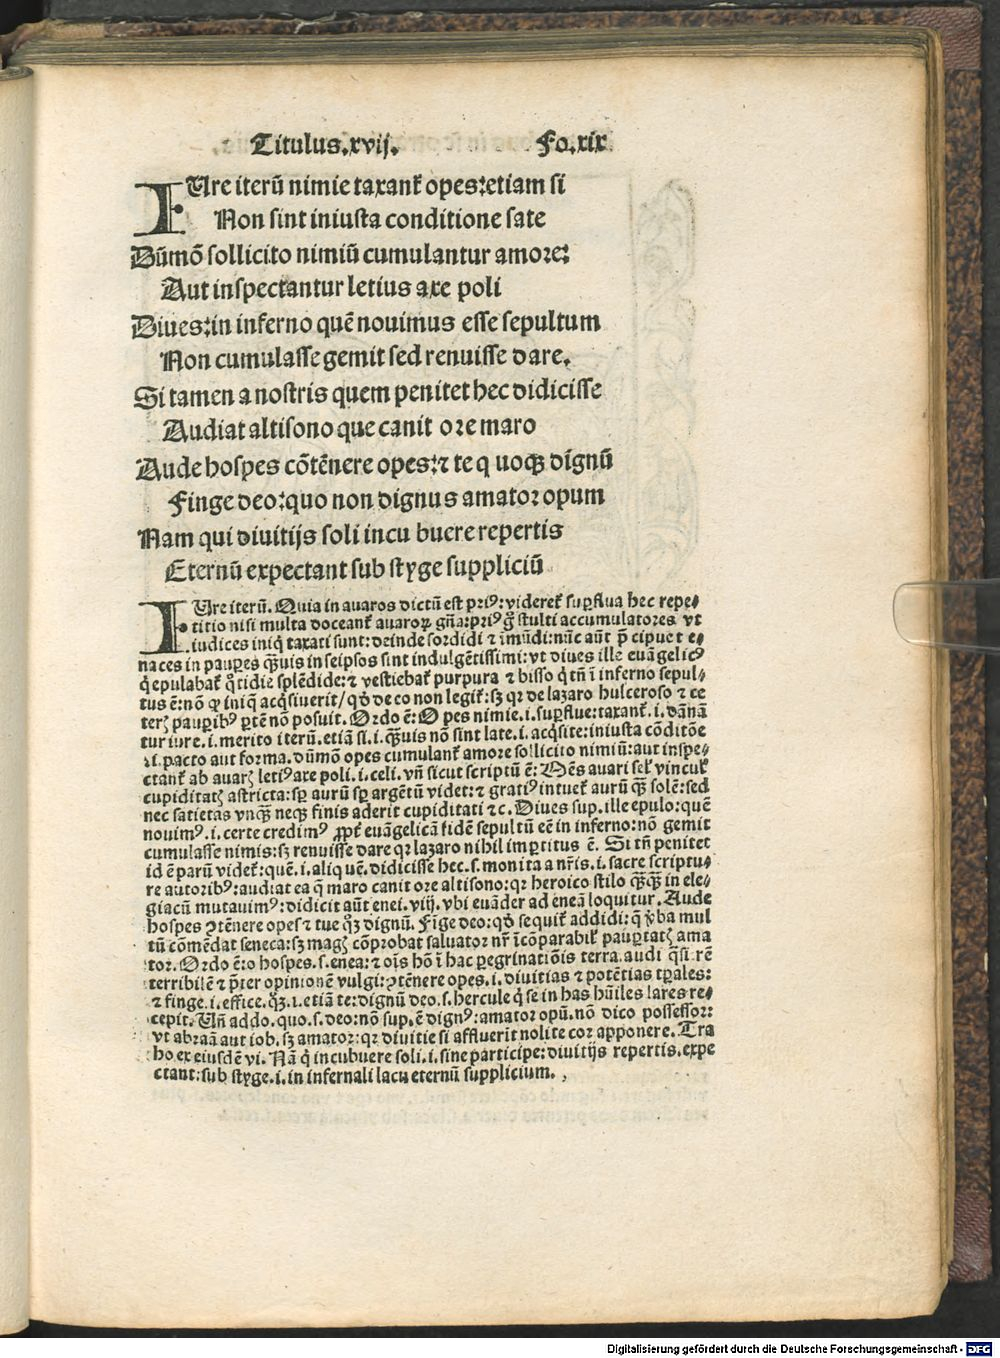 Titulus.xvij. Fo.xix
IUre iterū nimie taxant᷑ opes: etiam si
Non sint iniusta conditione sate
Dūmō sollicito nimiū cumulantur amore:
Aut inspectantur letius axe poli
Diues: in inferno quē nouimus esse sepultum
Non cumulasse gemit sed renuisse dare.
Si tamen a nostris quem penitet hec didicisse
Audiat altisono que canit ore maro
Aude hospes cōtēnere opes: ⁊ te q uoqꝫ dīgnū
Finge deo: quo non dignus amator opum
Nam qui diuitijs soli incu buere repertis
Eternū expectant sub styge suppliciū
IUre iterū. Quia in auaros dictū est priꝰ: videret᷑ suꝑflua hec repe-
titio nisi multa doceant᷑ auaroꝝ gn̄a: priꝰ g̊ stulti accumulatores vt
iudices iniq̇ taxati sunt: deinde sordidi ⁊ īmūdi: nūc aūt p̄ cipue t e-
naces in pauꝑes q̄ꝫuis in seipsos sint indulgētissimi: vt diues ille euāgelicꝰ
q̇ epulabat᷑ q̊tidie splēdide: ⁊ vestiebat᷑ purpura ⁊ bisso q̇ tn̄ ī inferno sepul-
tus ē: nō ꝙ iniq̄ acq̇siuerit/ qð de eo non legit᷑: sꝫ qꝛ de lazaro hulceroso ⁊ ce
terꝭ pauꝑibꝰ ꝑtē nō posuit. Ordo ē: O pes nimie .i. suꝑflue: taxant᷑ .i. dānā
tur iure .i. merito iterū. etiā si .i. q̄ꝫuis nō sint late .i. acq̇site: iniusta cōditōe
.i. pacto aut forma. dūmō opes cumulant᷑ amore sollicito nimiū: aut inspe-
ctant᷑ ab auarꝭ letiꝰ axe poli .i. celi. vn̄ sicut scriptū ē: Oēs auari sel᷑ vincul᷑
cupiditatꝭ astricta: sꝑ aurū sꝑ argētū videt: ⁊ gratiꝰ intuet᷑ aurū q̄ꝫ solē: sed
nec satietas vnqꝫ neqꝫ finis aderit cupiditati ⁊c. Diues sup. ille epulo: quē
nouimꝰ .i. certe credimꝰ ꝓpt᷑ euāgelicā fidē sepultū eē in inferno: nō gemit
cumulasse nimis: sꝫ renuisse dare qꝛ lazaro nihil imꝑtitus ē. Si tn̄ penitet
id ē parū videt᷑: quē .i. aliq uē. didicisse hec .s. mon ita a nr̄is .i. sacre scriptu-
re autoribꝰ: audiat ea q̄ maro canit ore altisono: qꝛ heroico stilo q̄ꝫq̄ꝫ in ele-
giacū mutauimꝰ: didicit aūt enei. viij. vbi euāder ad eneā loquitur. Aude
hospes ꝯtēnere opes ⁊ tue qꝫ dignū. Fīge deo: qð sequit᷑ addidi: q̄ v̄ba mul
tū cōmēdat seneca: sꝫ magꝭ cōprobat saluator nr̄ īcōparabil᷑ pauꝑtatꝭ ama
tor. Ordo ē: o hospes .s. enea: ⁊ oīs hō ī hac ꝑegrinatiōis terra. audi q̄si rē
terribilē ⁊ p̄ter opinionē vulgi: ꝯtēnere opes .i. diuitias ⁊ potētias tꝑales:
⁊ finge .i. effice. qꝫ .i. etiā te: dignū deo .s. hercule q̇ se in has hūiles lares re-
cepit. Un̄ addo. quo .s. deo: nō sup. ē dignꝰ: amator opū. nō dico possessor:
vt abraā aut iob. sꝫ amator: qꝛ diuitie si affluerīt nolite cor apponere. Tra
ho ex eiusdē vi. Nā q̇ incubuere soli .i. sine participe: diuitijs repertis. expe
ctant: sub styge .i. in infernali lacu eternū supplicium.
Digitalisierung gefördert durch die Deutsche Forschungsgemeinschaft - DFG